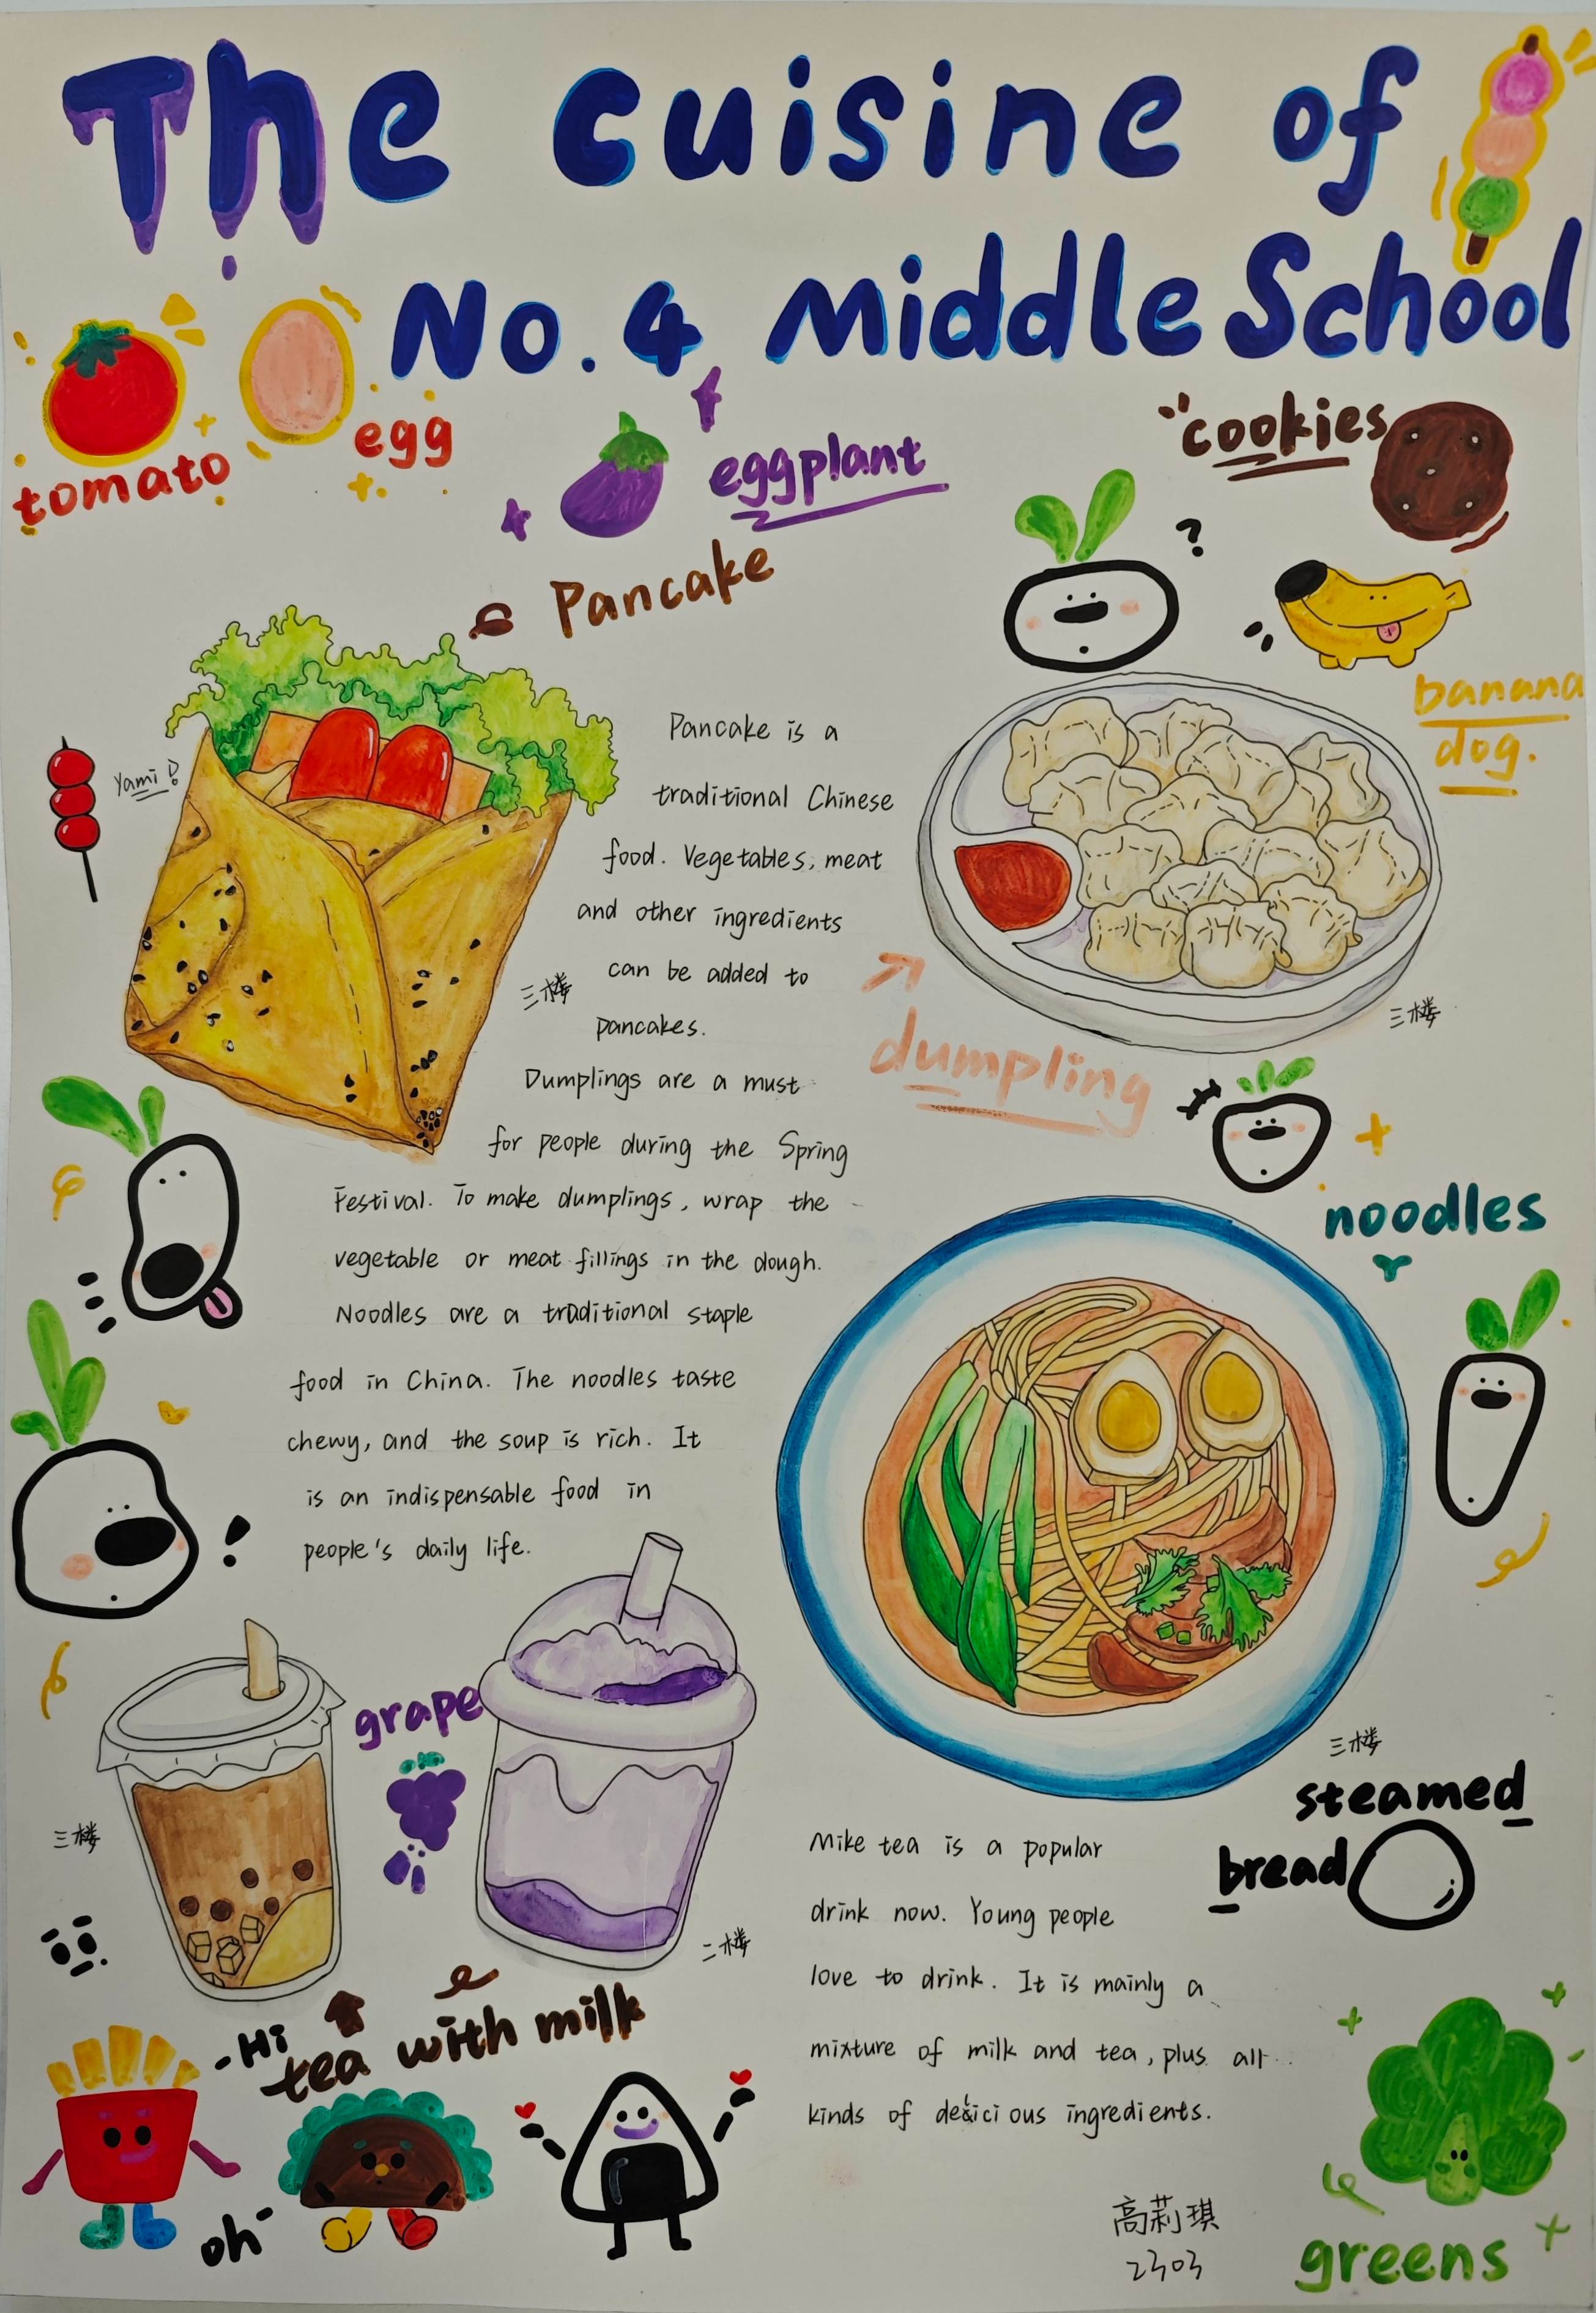 The cuisine of
No. 4 Middle School
tomato
egg
eggplant
cookies
Pancake
banana
dog.
Yami!
Pancake is a
traditional Chinese
food. Vegetables, meat
and other ingredients
can be added to
pancakes.
三楼
三楼
dumpling
Dumplings are a must
for people during the Spring
Festival. To make dumplings, wrap the
vegetable or meat fillings in the dough.
Noodles are a traditional staple
food in China. The noodles taste
chewy, and the soup is rich. It
is an indispensable food in
people's daily life.
noodles
三楼
grape
三楼
二楼
tea with milk
steamed
bread
Mike tea is a popular
drink now. Young people
love to drink. It is mainly a
mixture of milk and tea, plus all
kinds of delicious ingredients.
-Hi
oh-
高莉琪
2303
greens